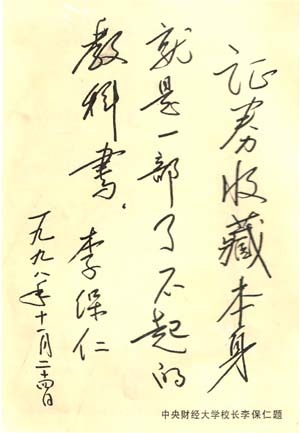 证券收藏本身
就是一部了不起的
教科书。
李保仁
一九九八年十一月二十四日
中央财经大学校长李保仁题